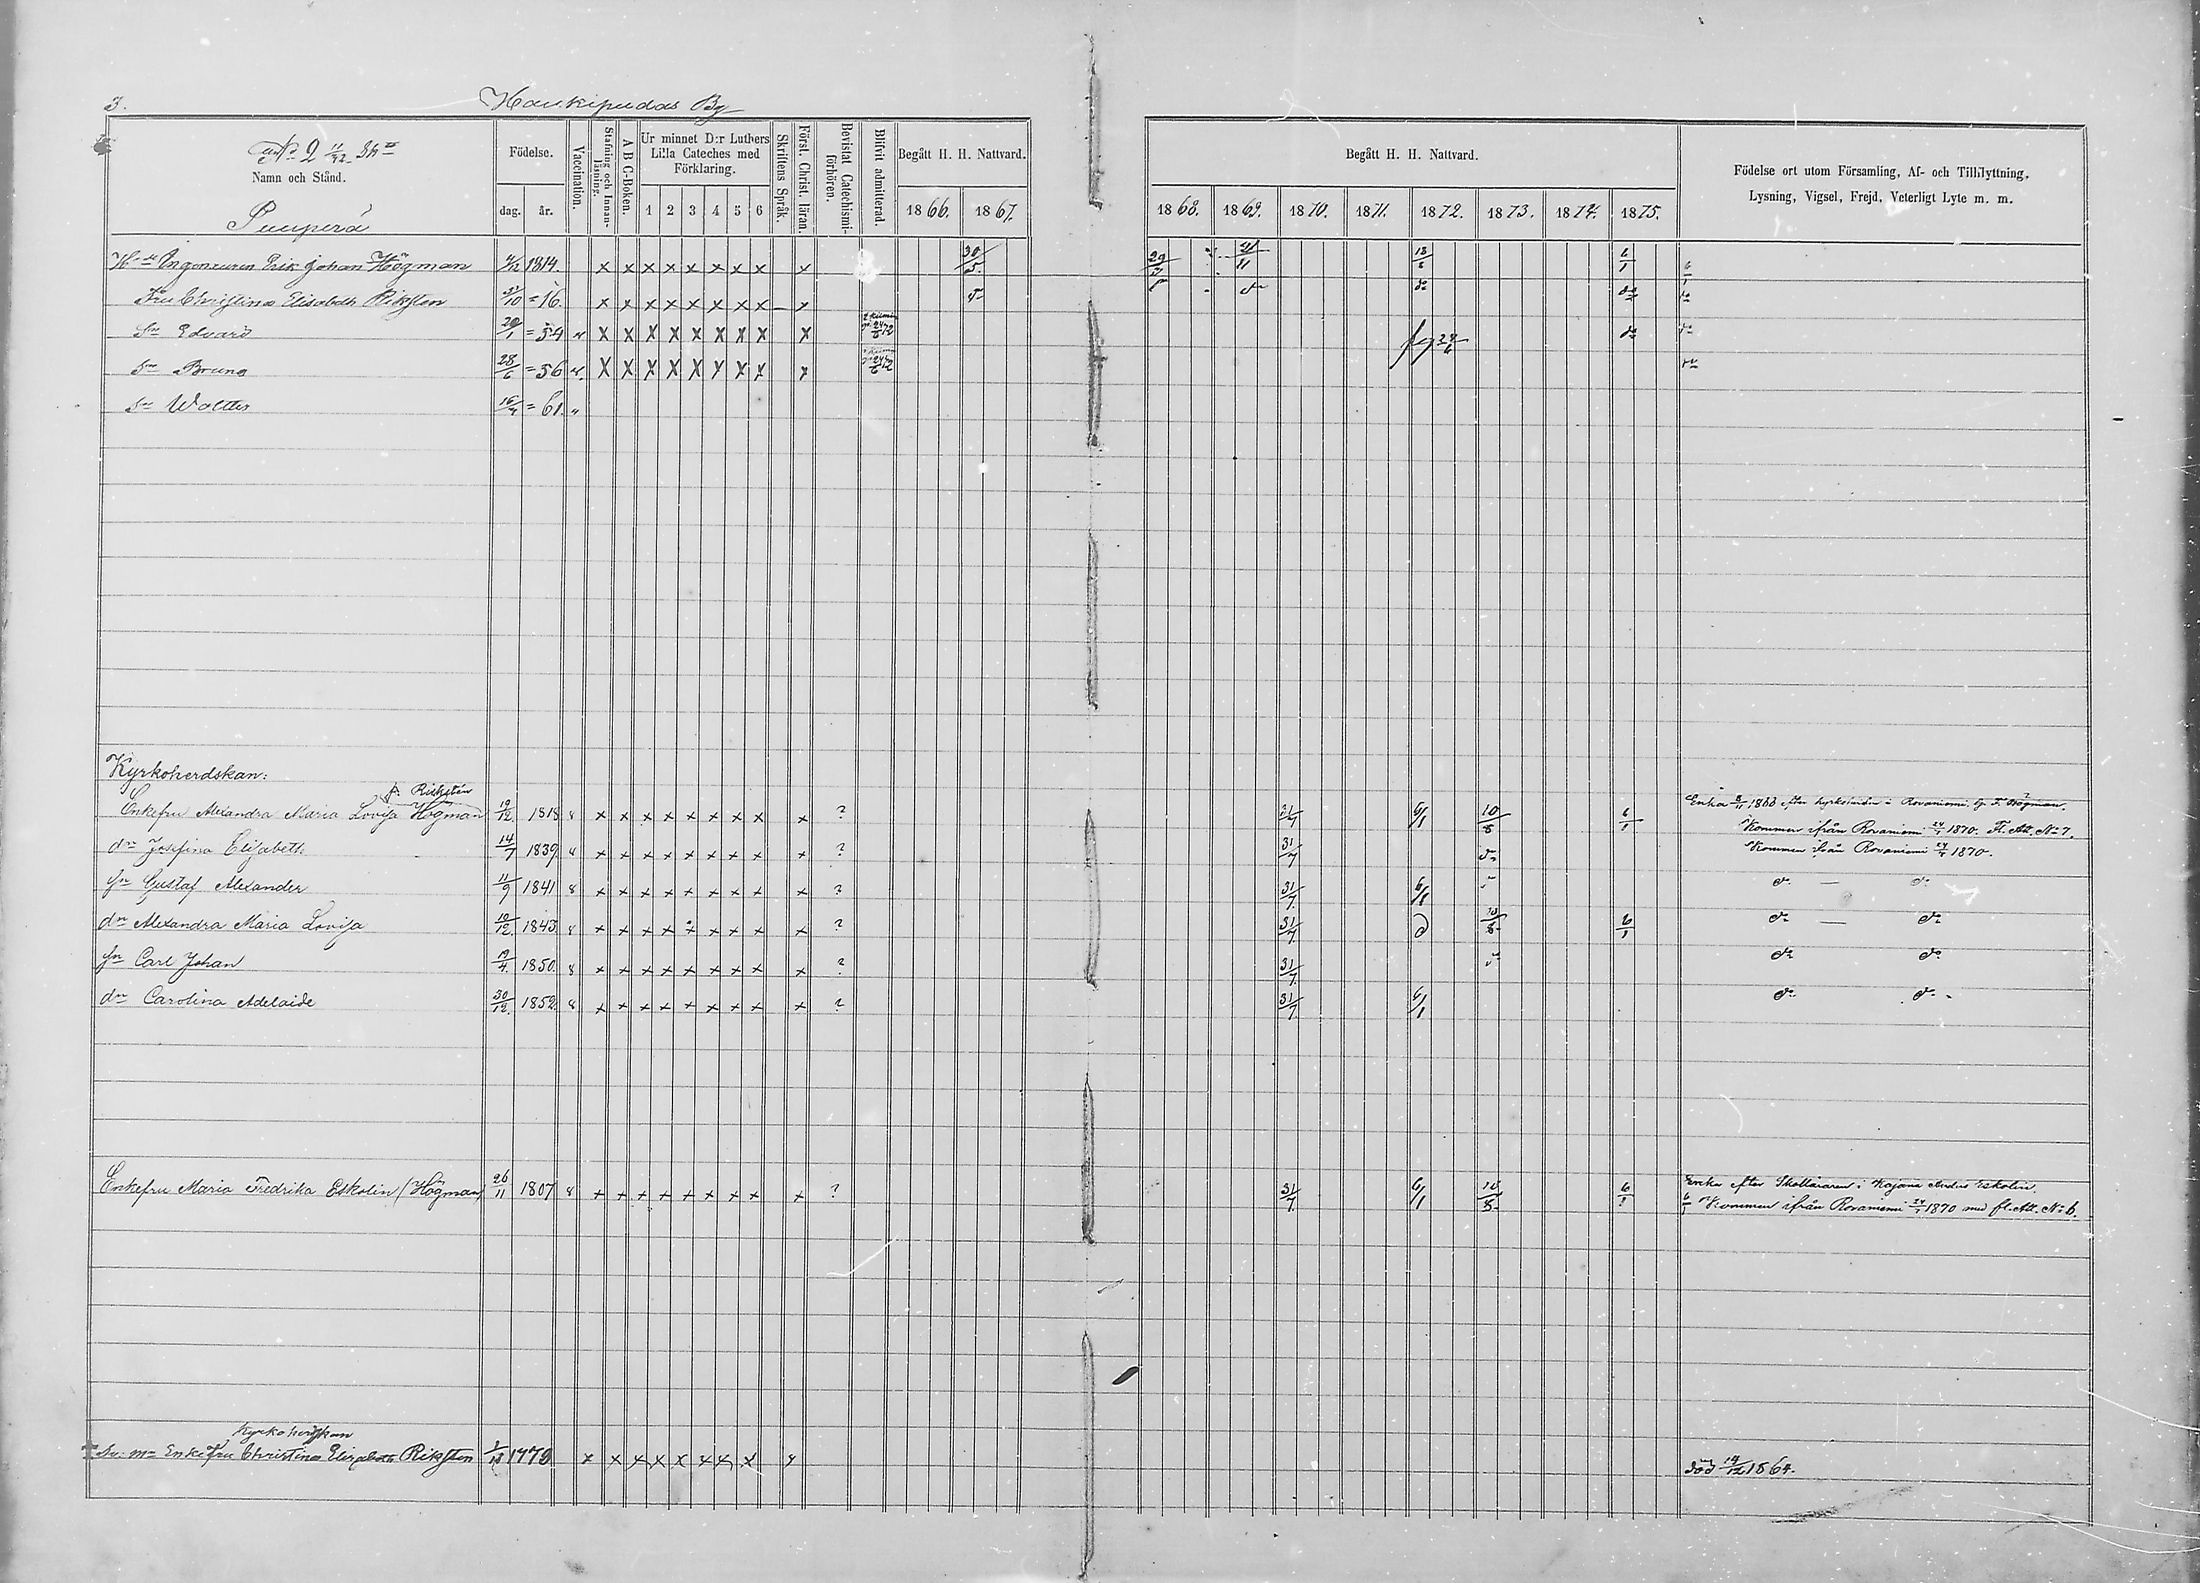 3.
Haukipudas By
No 2 11/92
Namn och Stånd.
Födelse.
dag.
år.
Vaccination.
Stafning och Innanläsning.
A B C-Boken.
Ur minnet D:r Luthers Lilla Cateches med Förklaring.
1 2 3 4 5 6
Skriftens Språk.
Först. Christ. läran.
Bevistat Catechismiförhören.
Blifvit admitterad.
Begått H. H. Nattvard.
1866. 1867.
Begått H. H. Nattvard.
1868. 1869. 1870. 1871. 1872. 1873. 1874. 1875.
Födelse ort utom Församling, Af- och Tillflyttning,
Lysning, Vigsel, Frejd, Veterligt Lyte m. m.
Puuperä
Ingenieuren Erik Johan Högman 1814. x x x x x x x x x 30/5. 18/6 6/1
Fru Christina Elisabeth Riksten = 16. x x x x x x x x – x
Sn Edvard 29/1 = 54 x x x x x x x x x
Sn Bruno 28/6 = 56 x x x x x x x x x
Sn Walter = 61.
Kyrkoherdskan:
f. Rikstén
Enkefru Alexandra Maria Lovisa Högman 19/12 1818 x x x x x x x x x ? 31/7 6/1 10/8 6/1 Enka efter kyrkoherden i Rovaniemi Högman.
Kommen ifrån Rovaniemi 1870. Fl. Att. No 7.
dn Josefina Elisabeth 14/7 1839 x x x x x x x x x ? 31/7 do Kommen ifrån Rovaniemi 1870.
Sn Gustaf Alexander 11/9 1841 8 x x x x x x x x x ? 31/7 6/1 do — do
dn Alexandra Maria Lovisa 10/12 1843 8 x x x x x x x x x ? 31/7 10/8 6/1 do — do
Sn Carl Johan 19/4 1850 8 x x x x x x x x x ? 31/7 do do
dn Carolina Adelaide 30/12 1852 8 x x x x x x x x x ? 31/7 6/1 do do
Enkefru Maria Fredrika Eskolin (Högman) 26/11 1807 8 x x x x x x x x x ? 31/7 6/1 10/8 6/1 Enka efter Skolläraren i Kajana Eskolin.
Kommen ifrån Rovaniemi 1870 med fl. Att. No 6.
Kyrkoherdskan
Enkefru Christina Elizabeth Riksten 1770 x x x x x x x x x död 19/12 1864.